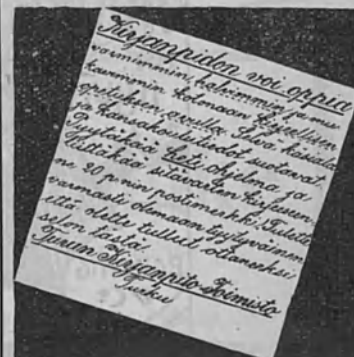 Kirjanpidon voi oppia
varmimmin, halvimmin ja mu-
kavimmin kotonaan kirjeellisen
opetuksen avulla. Selvä käsiala
ja kansakoulutiedot riittävät.
Pyytäkää heti ohjelma ja
liittäkää sitävarten kirjeeseen-
ne 20 p:nin postimerkki. Tulette
varmasti olemaan tyytyväinen
että olette tullut ottaneeksi
selon tästä!
Turun Kirjanpito-Toimisto
Turku